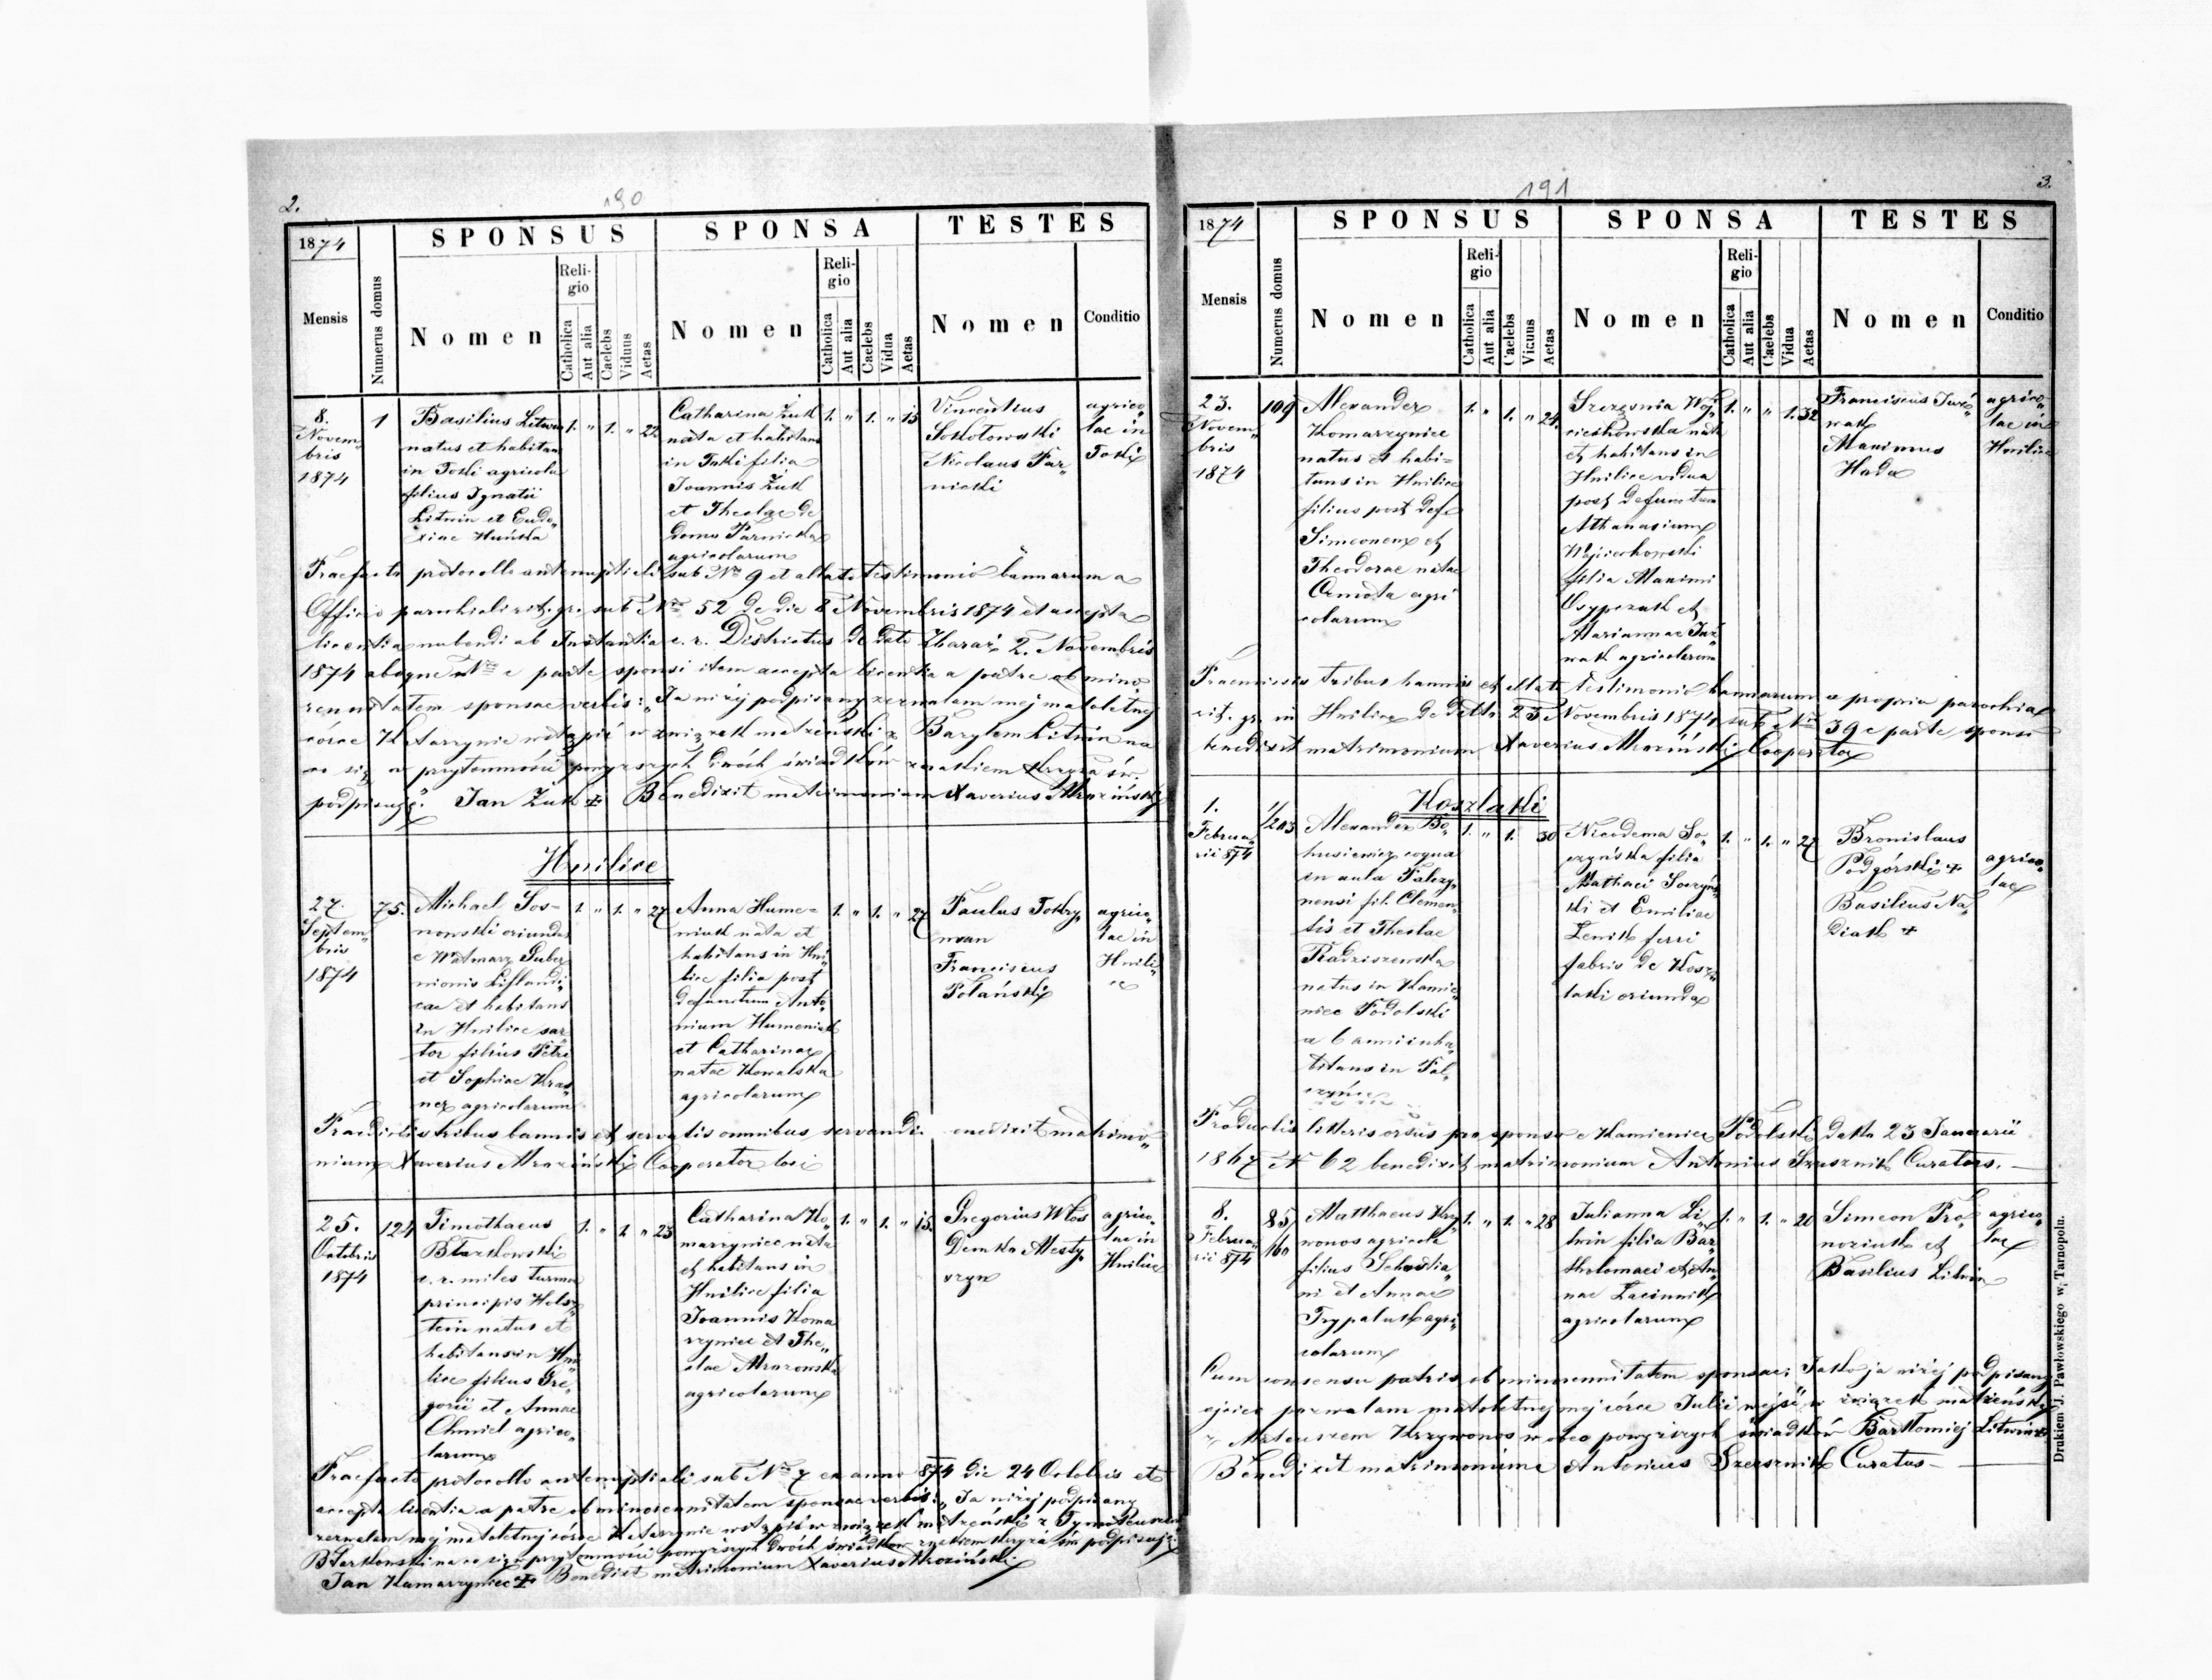 2.
190
1874
SPONSUS
SPONSA
TESTES
Mensis
Numerus domus
Nomen
Religio
Catholica
Aut alia
Caelebs
Viduus
Aetas
Nomen
Religio
Catholica
Aut alia
Caelebs
Vidua
Aetas
Nomen
Conditio
8.
Novem„
bris
1874
1
Basilius Litwin
natus et habitans
in Toki agricola
filius Ignatii
Litwin et Eudo„
xiae
1. „ 1. „ 22
Catharina Żuk
nata et habitans
in Toki filia
Joannis Żuk
et Theclae de
domo Parnicka
agricolarum
1. „ 1. „ 15
Vincentius
Sokołowski
Nicolaus Par„
nicki
agrico„
lae in
Toki
Praefacto protocollo antenuptiali sub Nro 9 et allato testimonio bannarum a
Officio parochiali rit. gr. sub Nro 52 de die 8 Novembris 1874 et accepta
licentia nubendi ab Instantia c. r. Districtus de dato Zbaraż 2. Novembris
1874 absque Nro e parte sponsi item accepta licentia a patre ob mino„
rennitatem sponsae verbis: „Ja niżej podpisany zezwalam mej małoletniej
córce Katarzynie wstąpić w związek małżeński z Bazylem Litwin na
co się w przytomności powyższych dwóch świadków znakiem krzyża św.
podpisuję." Jan Żuk + Benedixit matrimonium Xaverius Mroziński
Hnilice
27.
Septem„
bris
1874
75.
Michael Sos-
nowski oriundus
e Watmarz Guber
nionis Liflandi„
cae et habitans
in Hnilice sar
tor filius Petri
et Sophiae Kras
nez agricolarum
1. „ 1. „ 27
Anna Hume-
niuk nata et
habitans in Hni„
lice filia post
defunctum Anto
nium Humeniuk
et Catharinae
natae Kowalska
agricolarum
1. „ 1. „ 27
Paulus Tokry„
man
Franciscus
Polański
agrico„
lae in
Hnili„
ce
Praedictis tribus bannis et servatis omnibus servandis benedixit matrimo„
nium Xaverius Mroziński Cooperator loci
25.
Octobris
1874
124
Timothaeus
Błazkowski
c. r. miles turma
principis Hols„
tein natus et
habitans in Hni
lice filius Gre„
gorii et Annae
Chmiel agrico„
larum
1. „ 1. „ 23
Catharina Ko„
marzyniec nata
et habitans in
Hnilice filia
Joannis Koma
rzyniec et The„
clae Mrozowska
agricolarum
1. „ 1. „ 15.
Gregorius Włos
Demko Mesty„
czyn
agrico„
lae in
Hnilice
Praefacto protocollo antenuptiali sub Nro 7 ex anno 874 die 24 Octobris et
accepta licentia a patre ob minorennitatem sponsae verbis: „Ja niżej podpisany
zezwalam mej małoletniej córce Katarzynie wstąpić w związek małżeński z Tymoteuszem
Błazkowski na co się w przytomności powyższych dwóch świadków znakiem krzyża św. podpisuję."
Jan Komarzyniec + Benedixit matrimonium Xaverius Mroziński
191
3.
1874
SPONSUS
SPONSA
TESTES
Mensis
Numerus domus
Nomen
Religio
Catholica
Aut alia
Caelebs
Viduus
Aetas
Nomen
Religio
Catholica
Aut alia
Caelebs
Vidua
Aetas
Nomen
Conditio
23.
Novem„
bris
1874
109
Alexander
Komarzyniec
natus et habi=
tans in Hnilice
filius post def.
Simeonem et
Theodorae natae
agri
colarum
1. „ 1. „ 24.
Szczęsnia Woj„
ciechowska nata
et habitans in
Hnilice vidua
post defunctum
Athanasium
Wojciechowski
filia Maximi
Osypczuk et
Mariannae Juź
wak agricolarum
1. „ „ 1. 32
Franciscus Juź„
wak
Maximus
Hada
agrico„
lae in
Hnilice
Praemissis tribus bannis et allato testimonio bannarum a propria parochia
rit. gr. in Hnilice de dtto. 23 Novembris 1874 sub Nro 39 e parte sponsi
benedixit matrimonium Xaverius Mroziński Cooperator
Koszlaki
1.
Februa„
rii 874
1/203
Alexander Bo„
husiewicz coqua
in aula Palczy„
nensi fil. Clemen„
tis et Theclae
Radziszewska
natus in Kamie„
niec Podolski
a 6 annis inha„
bitans in Pal„
czyńce
1. „ 1. 30
Nicodema So„
czyńska filia
Mathaei Soczyńs
ki et Emiliae
Lenik ferri
fabris de Kosz„
laki oriunda
1. „ 1. „ 27
Bronislaus
Podgórski +
Basilius Na„
diak +
agrico„
lae
Productis litteris orsus pro sponso e Kamieniec Podolski datto 23 Januarii
1867 N 62 benedixit matrimonium Antonius Szersznik Curatus. —
8.
Februa„
rii 874
85/
160
Matthaeus Krzy„
wonos agricola
filius Sebastia„
ni et Annae
Trypaluk agri„
colarum
1. „ 1. „ 28
Julianna Li„
twin filia Bar„
tholomaei et An„
nae Lacinnik
agricolarum
1. „ 1. „ 20
Simeon Pro„
noziuk et
Basilius Litwin
agrico„
lae
Cum consensu patris ob minorennitatem sponsae: Jako ja niżej podpisany
ojciec pozwalam małoletniej mej córce Julii wejść w związek małżeński
z Mateuszem Krzywonos wobec powyższych świadków Bartłomiej Litwin +
Benedixit matrimonium Antonius Szersznik Curatus —
Drukiem J. Pawłowskiego w Tarnopolu.